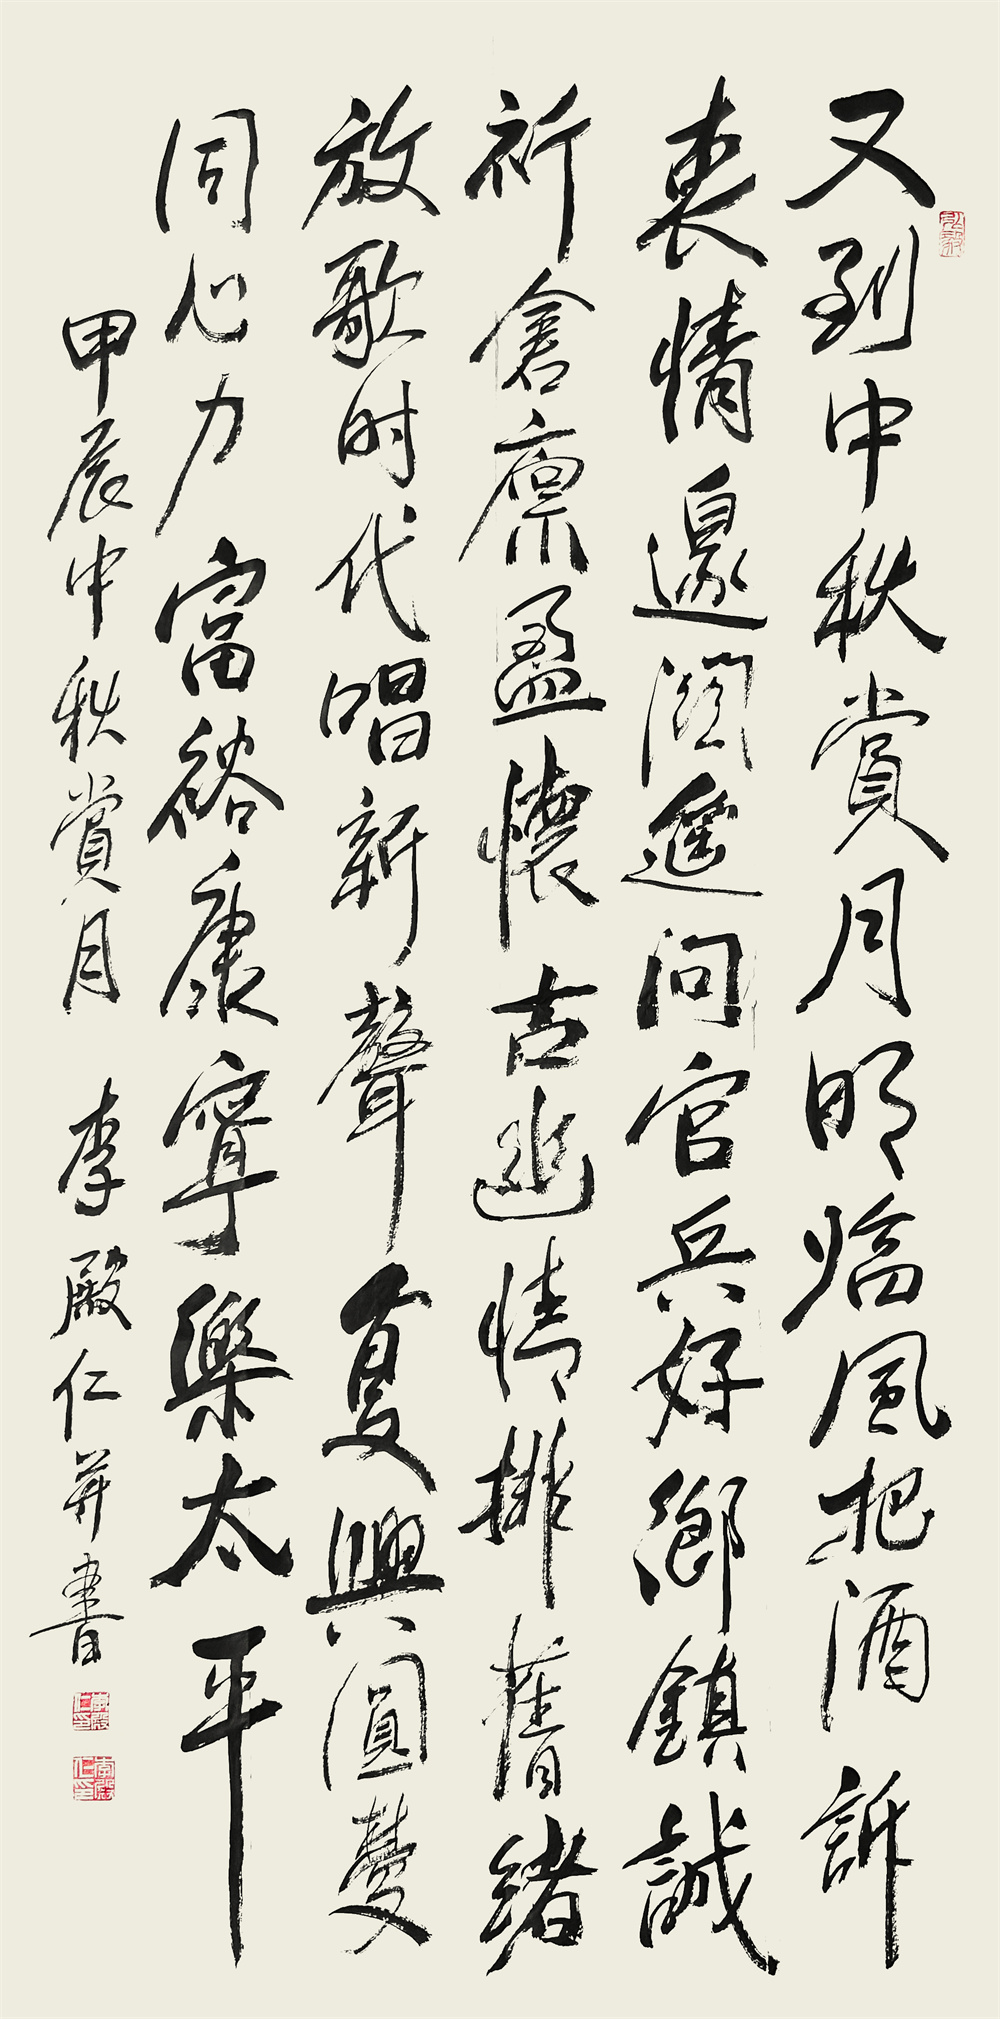 又到中秋賞月明臨風把酒訴
衷情邊關遥問官兵好鄉鎮誠
祈倉廩盈懷古幽情排舊緒
放歌时代唱新聲复興圓夢
同心力富裕康寧樂太平
甲辰中秋賞月 李殿仁并書